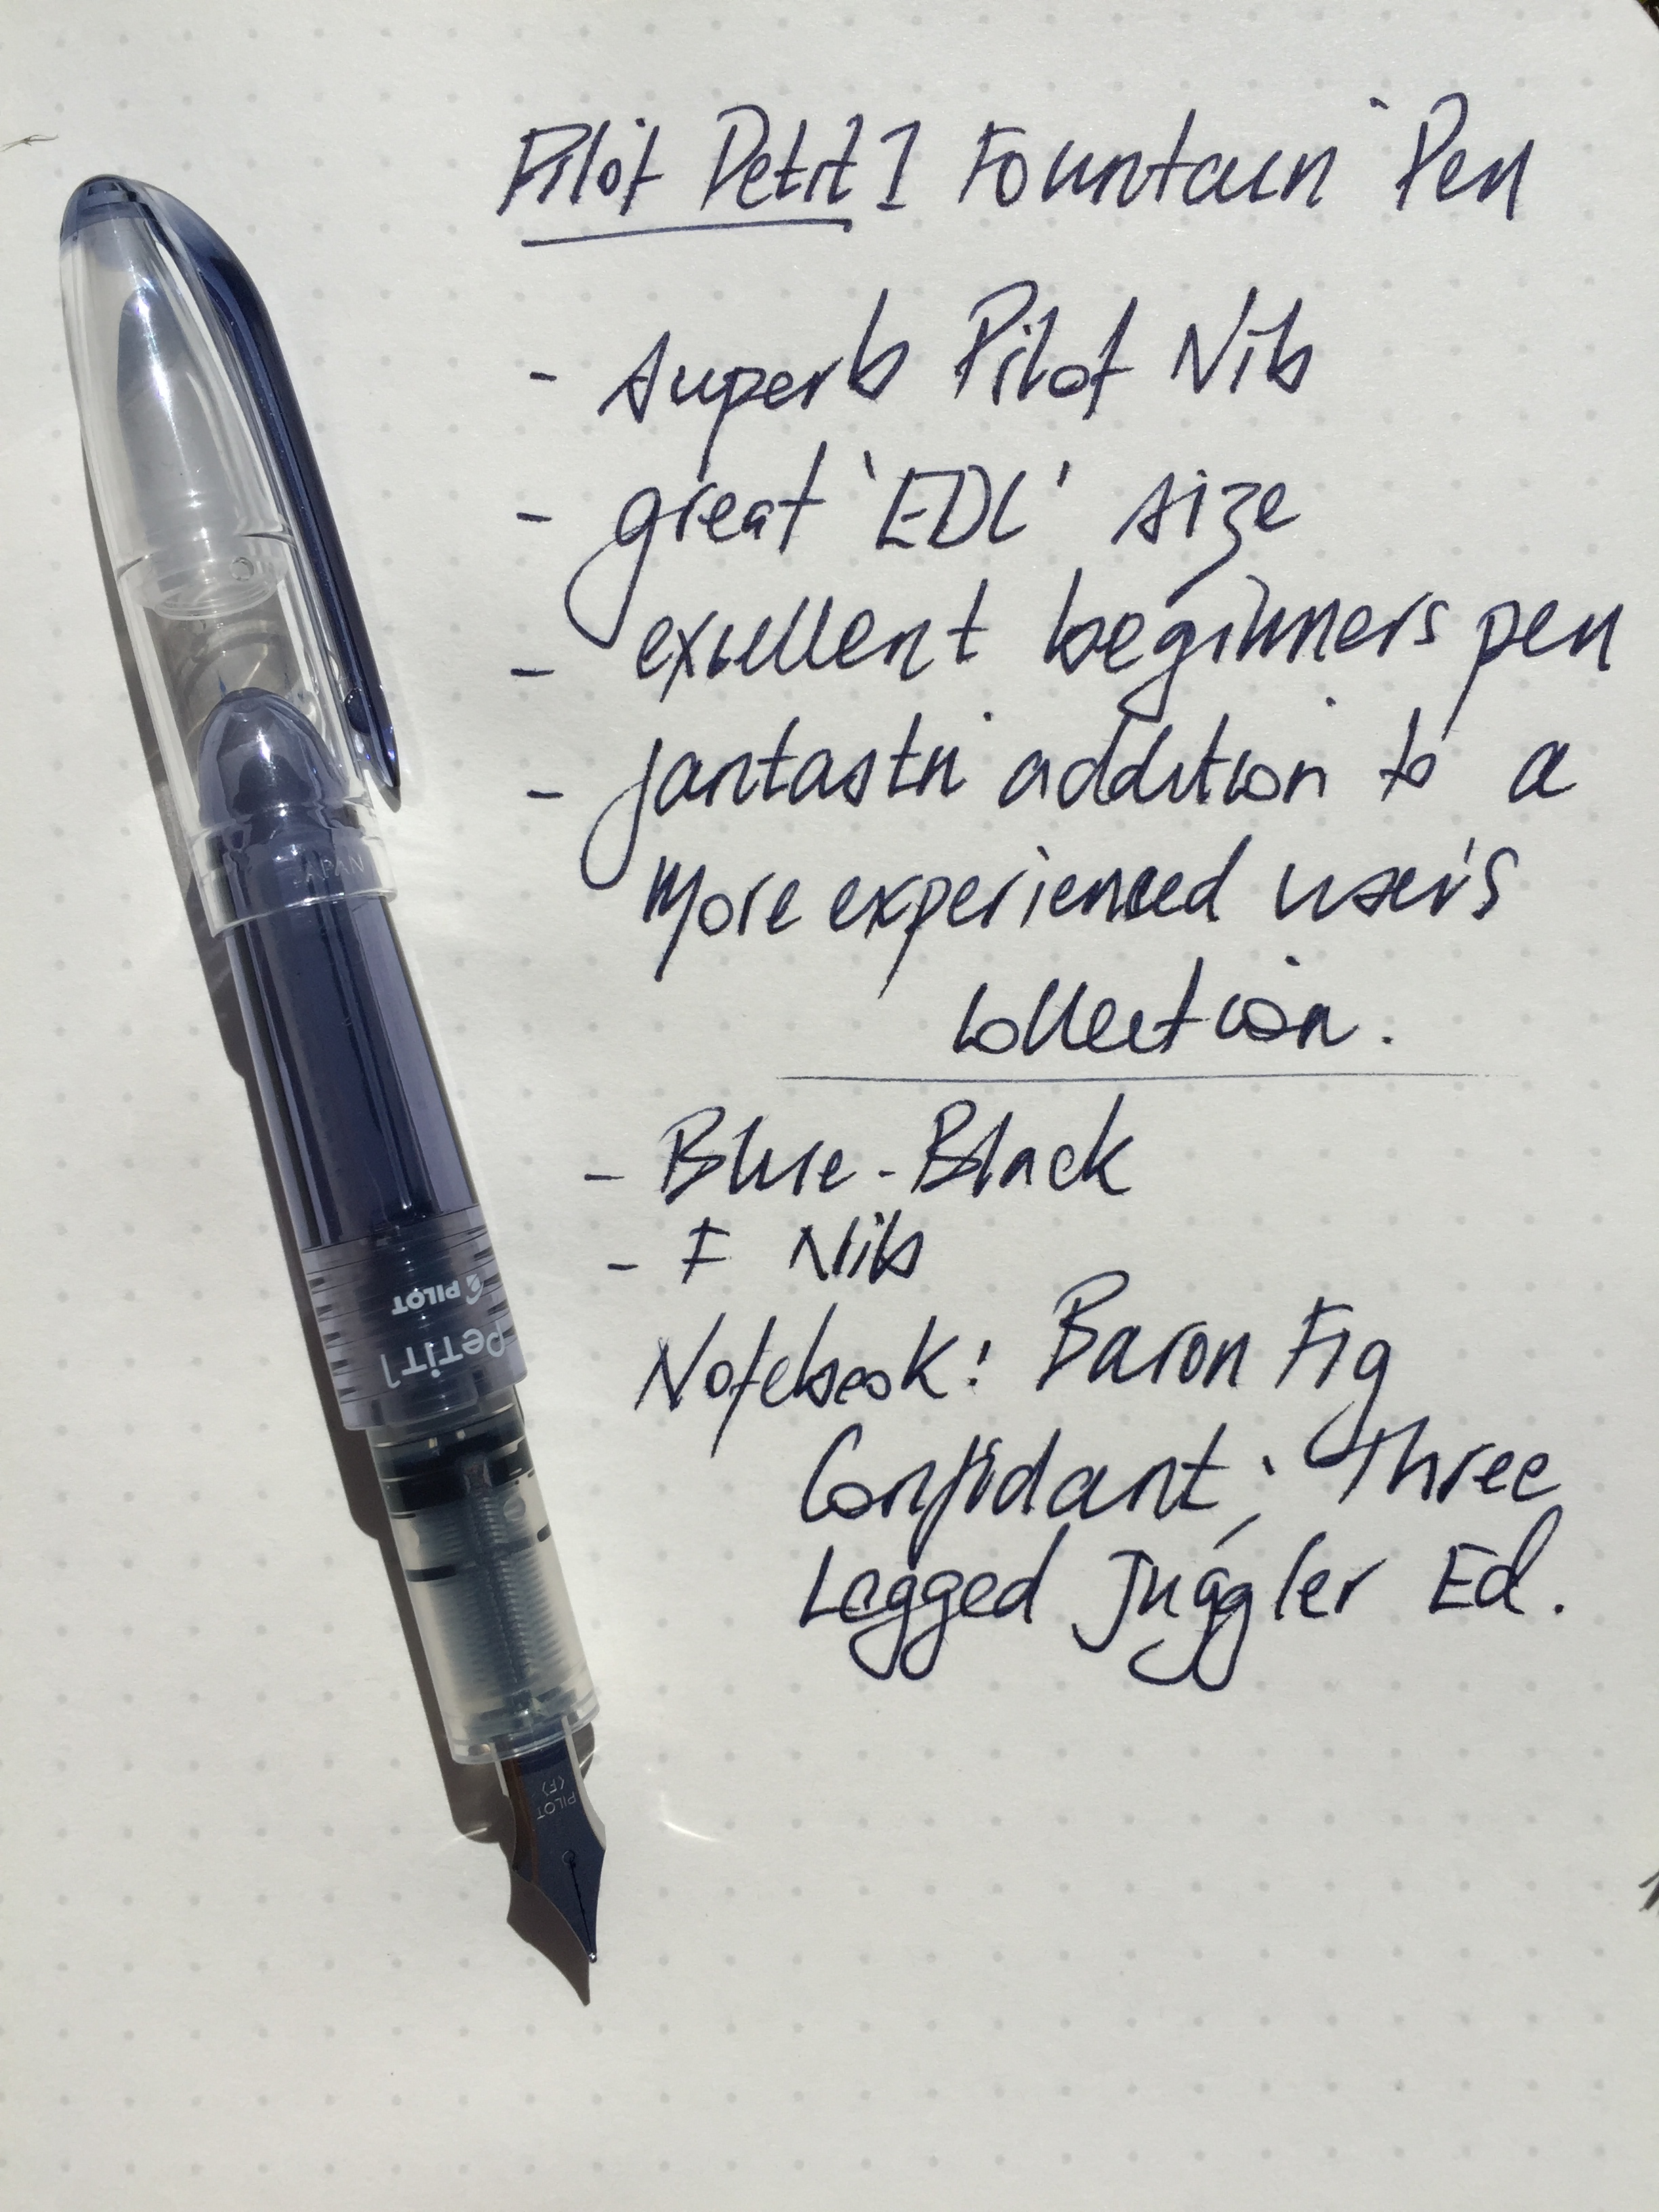 Pilot Petit 1 Fountain Pen
- superb Pilot Nib
- great 'EDC' size
- excellent beginners pen
- fantastic addition to a
more experienced user's
collection.
- Blue-Black
- F Nib
Notebook: Baron Fig
Confidant; Three
Legged Juggler Ed.
JAPAN
PILOT
Petit1
PILOT
<F>